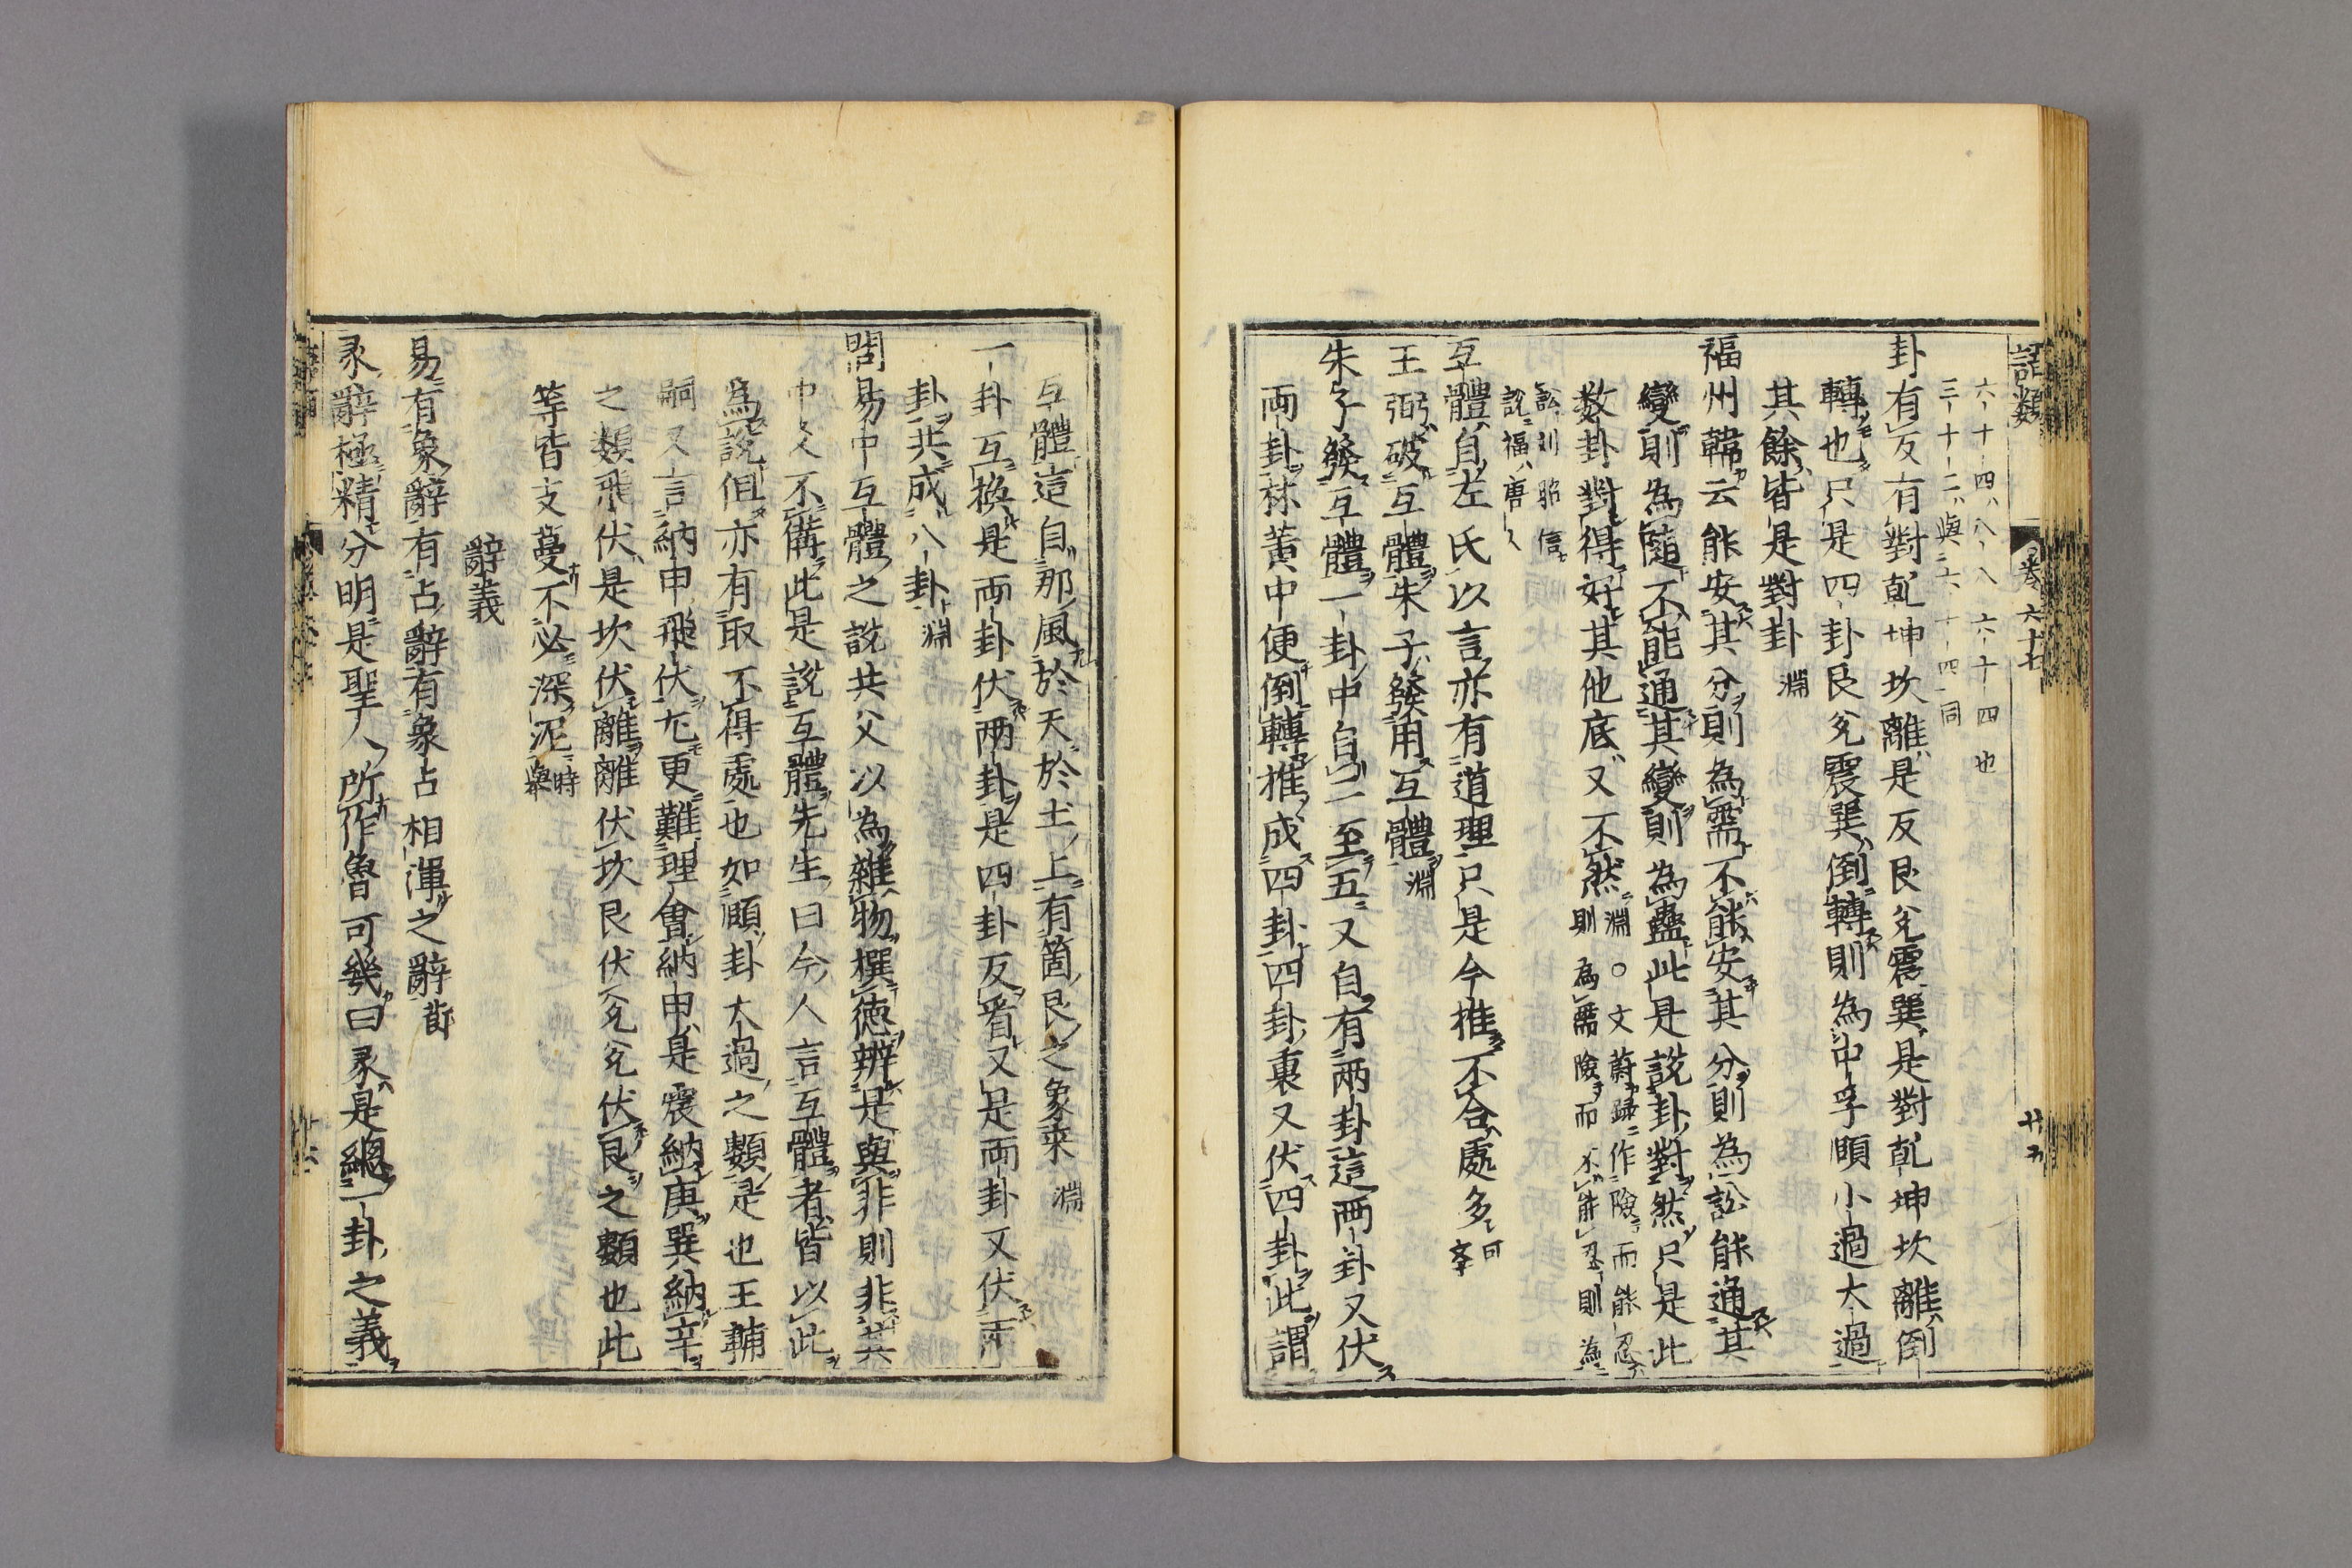 語類
卷六十七
廿五
六十四八八六十四也
三十二與六十四同
卦有反有對乹坤坎離是反艮兌震巽是對乹坤坎離倒
轉也只是四卦艮兌震巽倒轉則為中孚頤小過大過
其餘皆是對卦淵
福州韓云能安其分則為需不能安其分則為訟能通其
變則為隨不能通其變則為蠱此是說卦對然只是此
数卦對得好其他底又不然淵○文蔚錄作險而能忍
則為需險而不能忍則為
訟刘昭信
說福唐人
互體自左氏以言亦有道理只是今推不合處多可
學
王弼破互體朱子發用互體淵
朱子發互體一卦中自二至五又自有兩卦這两卦又伏
両卦林黃中便倒轉推成四卦四卦裏又伏四卦此謂
互體這自那風於天於土上有箇艮之象來淵
一卦互換是両卦伏两卦是四卦反看又是両卦又伏両
卦共成八卦淵
問易中互體之說共父以為雜物撰德辨是與非則非其
中爻不備此是說互體先生曰今人言互體者皆以此
為說但亦有取不得處也如頤卦大過之類是也王輔
嗣又言納甲飛伏尤更難理會納甲是震納庚巽納辛
之類飛伏是坎伏離離伏坎艮伏兌兌伏艮之類也此
等皆支蔓不必深泥時
舉
辭義
易有象辭有占辭有象占相渾之辭節
彖辭極精分明是聖人所作魯可幾曰彖是總一卦之義